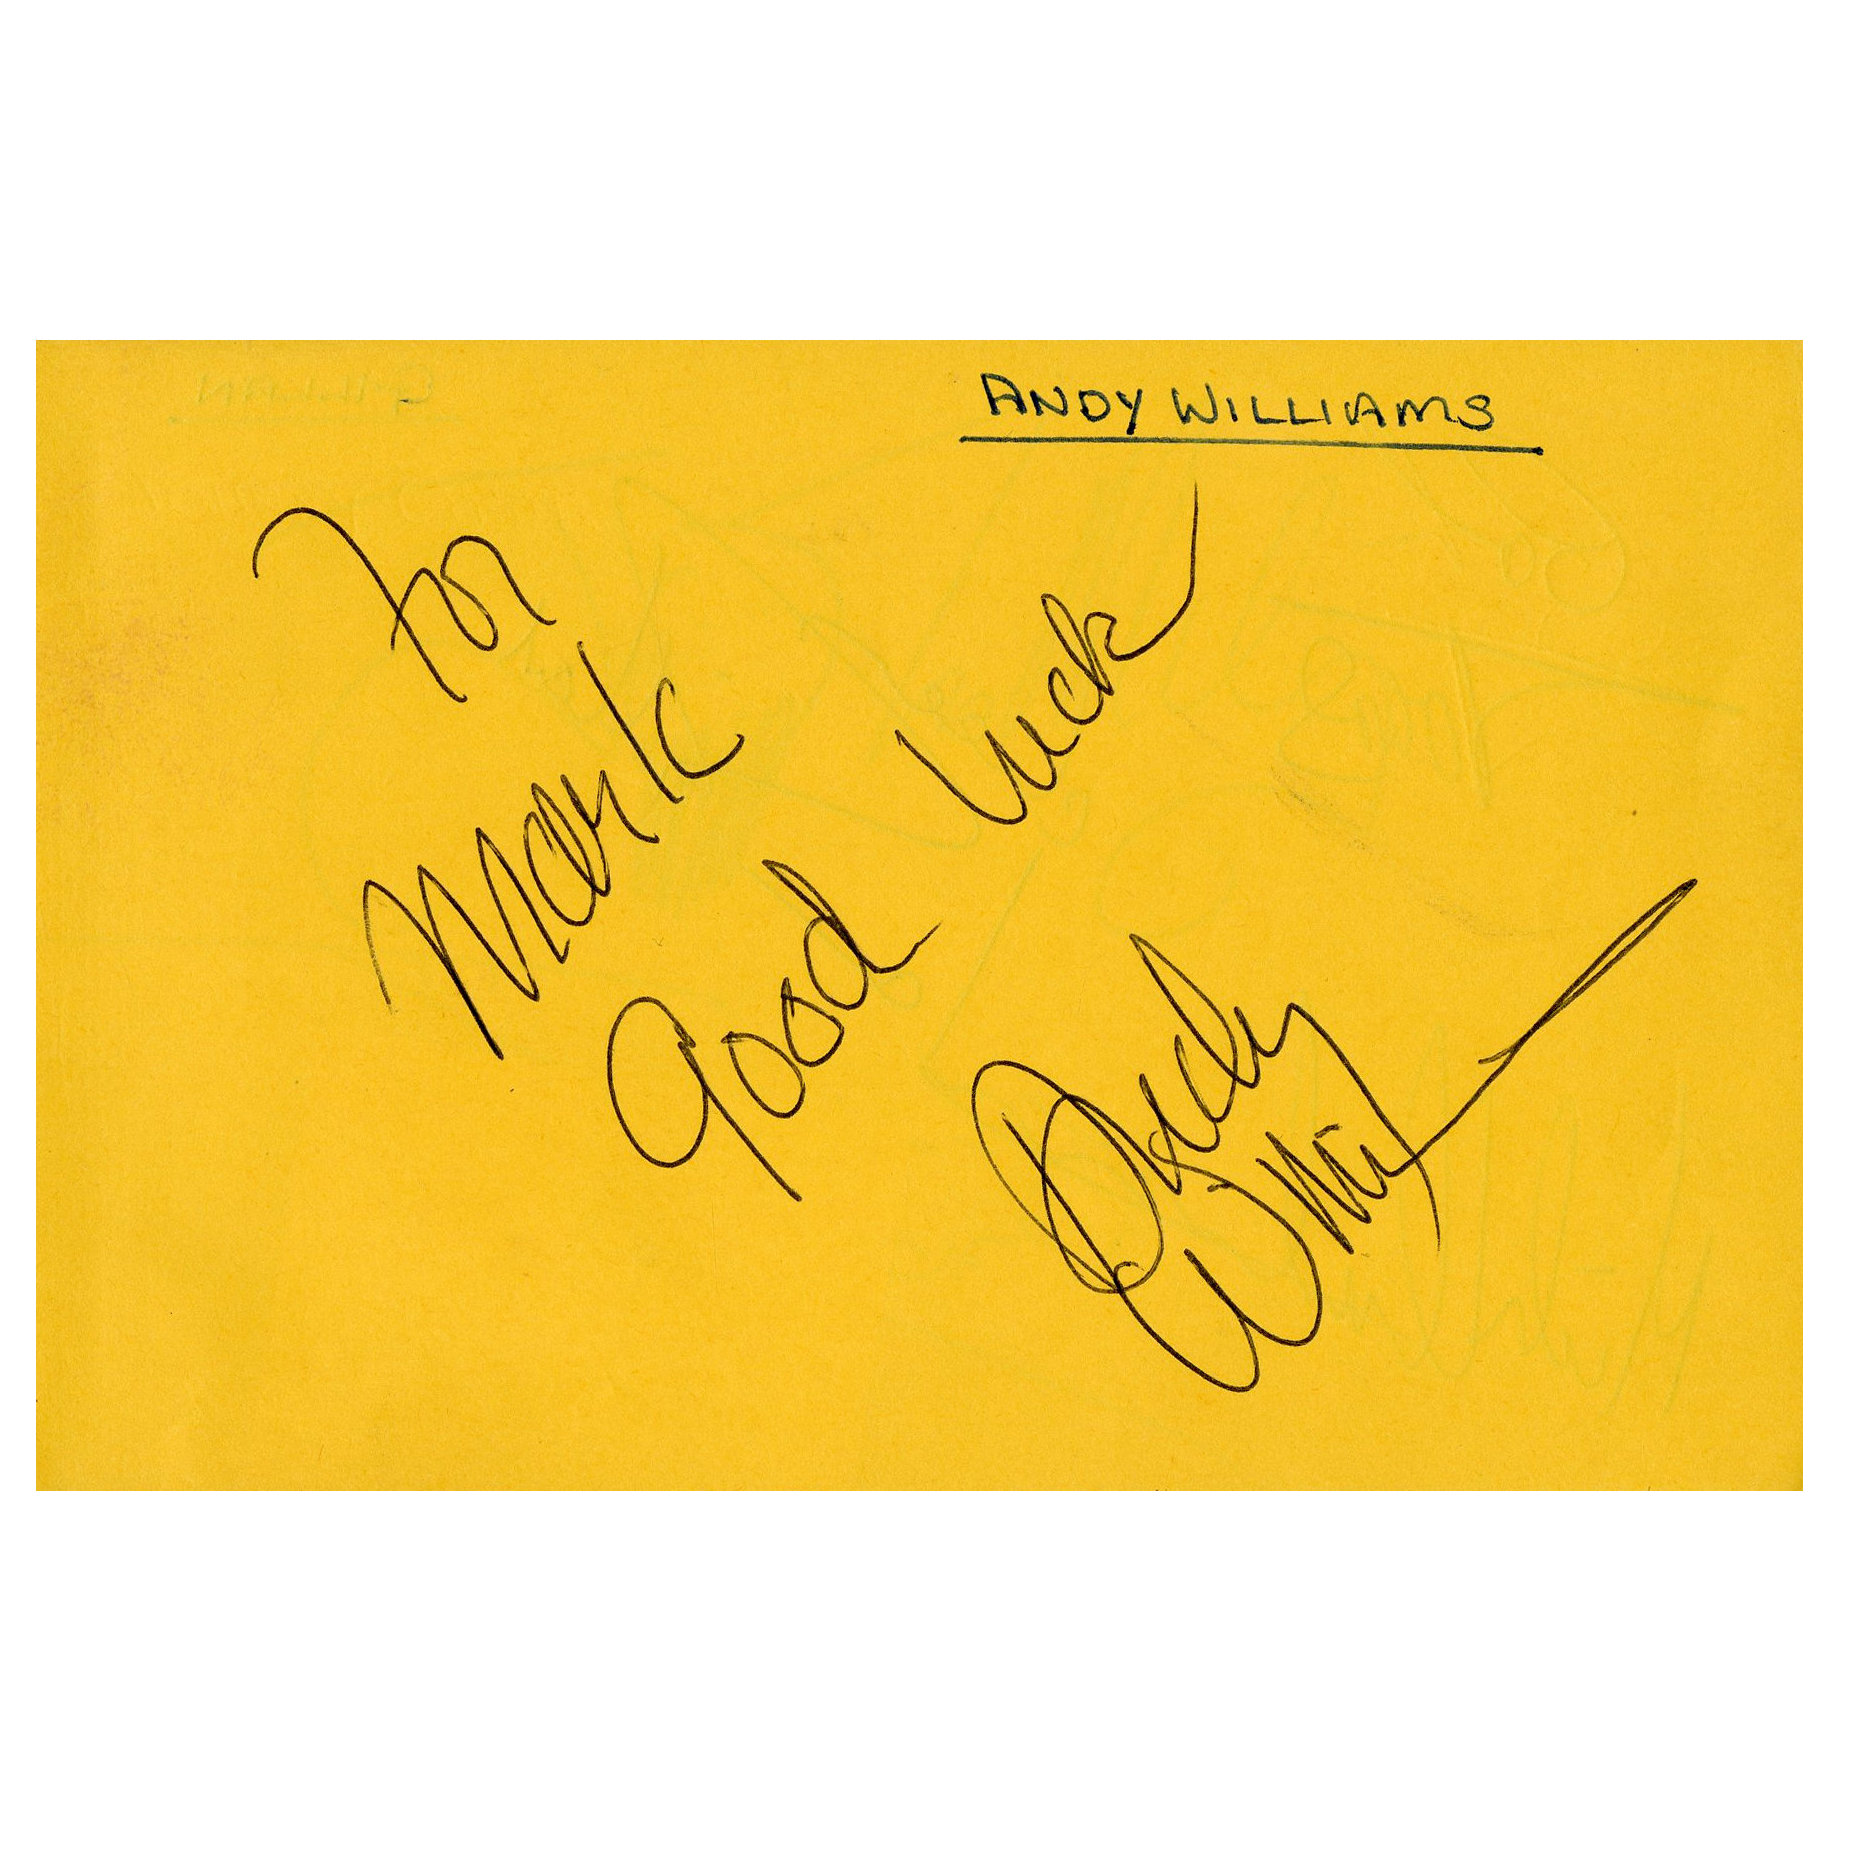 ANDY WILLIAMS
For
Mark
Good Luck
Andy Williams